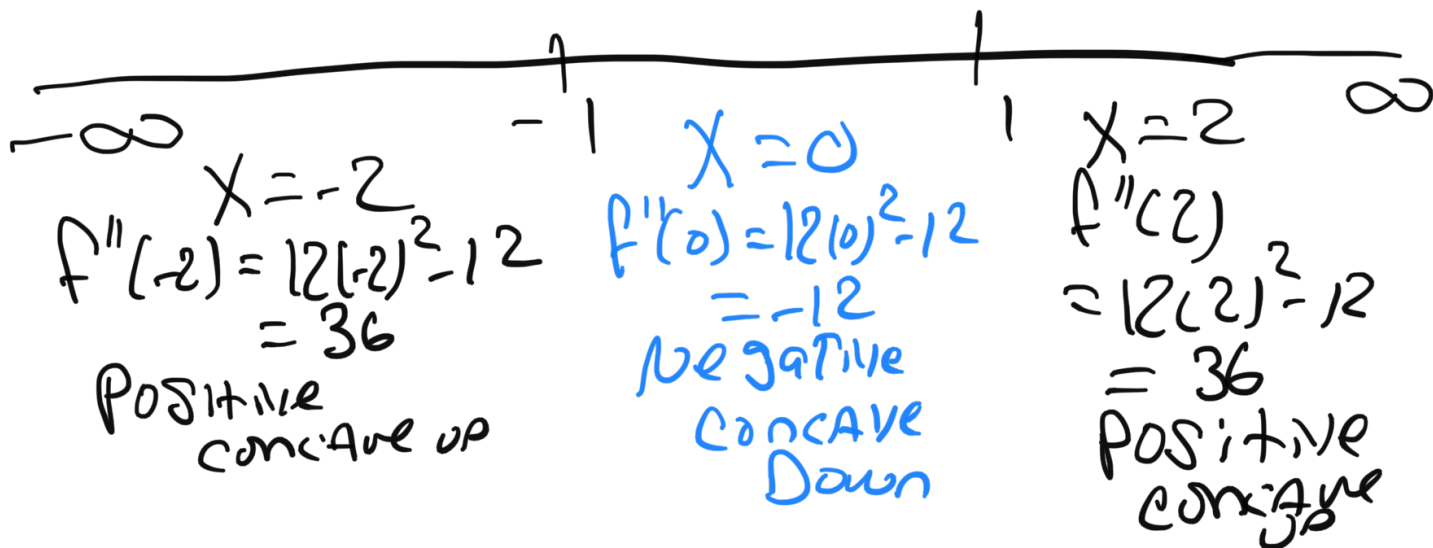 -∞
-1
1
∞
X=-2
f''(-2)=12(-2)²-12
=36
Positive
concave up
X=0
f''(0)=12(0)²-12
=-12
Negative
concave
Down
X=2
f''(2)
=12(2)²-12
=36
Positive
concave
up